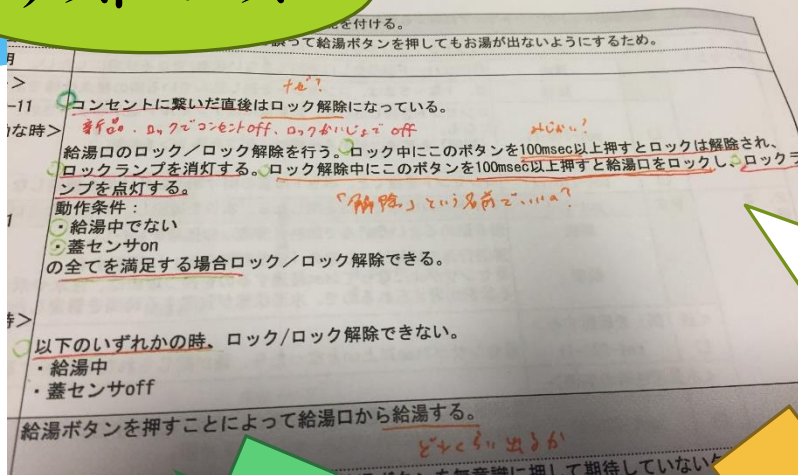 を付ける。
って給湯ボタンを押してもお湯が出ないようにするため。
なぜ?
-11
コンセントに繋いだ直後はロック解除になっている。
な時>
新品、ロックでコンセントoff、ロックかいじょで off
みじかい?
給湯口のロック/ロック解除を行う。ロック中にこのボタンを100msec以上押すとロックは解除され、
ロックランプを消灯する。ロック解除中にこのボタンを100msec以上押すと給湯口をロックし、ロックラ
ンプを点灯する。
「解除」という名前でいいの?
動作条件:
・給湯中でない
・蓋センサon
の全てを満足する場合ロック/ロック解除できる。
以下のいずれかの時、ロック/ロック解除できない。
・給湯中
・蓋センサoff
給湯ボタンを押すことによって給湯口から給湯する。
どれくらい出るか
を無意識に押して期待していない